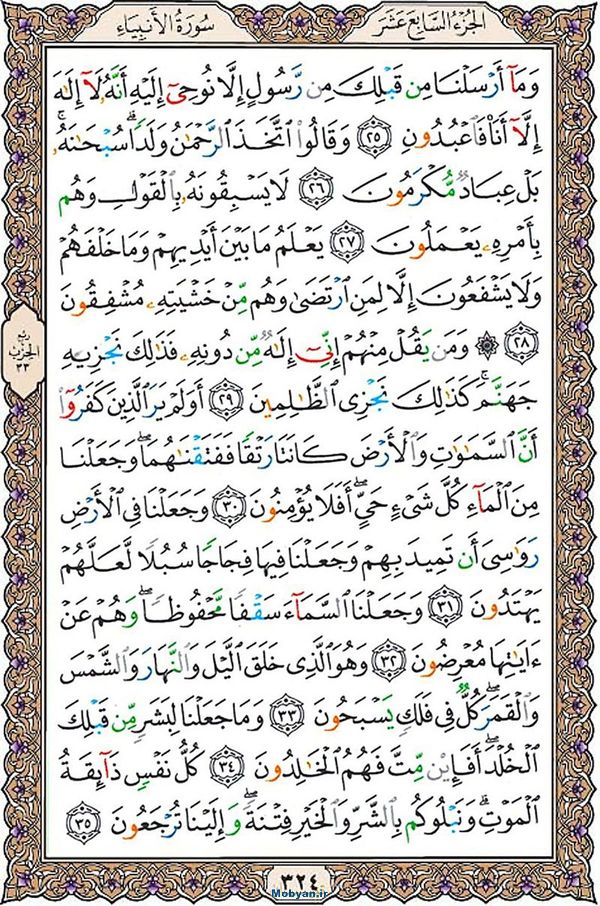 الجزء السابع عشر
سورة الأنبياء
وَمَآ أَرْسَلْنَا مِن قَبْلِكَ مِن رَّسُولٍ إِلَّا نُوحِىٓ إِلَيْهِ أَنَّهُۥ لَآ إِلَٰهَ
إِلَّآ أَنَا۠ فَٱعْبُدُونِ ٢٥ وَقَالُوا۟ ٱتَّخَذَ ٱلرَّحْمَٰنُ وَلَدًا ۗ سُبْحَٰنَهُۥ ۚ
بَلْ عِبَادٌ مُّكْرَمُونَ ٢٦ لَا يَسْبِقُونَهُۥ بِٱلْقَوْلِ وَهُم
بِأَمْرِهِۦ يَعْمَلُونَ ٢٧ يَعْلَمُ مَا بَيْنَ أَيْدِيهِمْ وَمَا خَلْفَهُمْ
وَلَا يَشْفَعُونَ إِلَّا لِمَنِ ٱرْتَضَىٰ وَهُم مِّنْ خَشْيَتِهِۦ مُشْفِقُونَ
٢٨ ۞ وَمَن يَقُلْ مِنْهُمْ إِنِّىٓ إِلَٰهٌ مِّن دُونِهِۦ فَذَٰلِكَ نَجْزِيهِ
جَهَنَّمَ ۚ كَذَٰلِكَ نَجْزِى ٱلظَّٰلِمِينَ ٢٩ أَوَلَمْ يَرَ ٱلَّذِينَ كَفَرُوٓا۟
أَنَّ ٱلسَّمَٰوَٰتِ وَٱلْأَرْضَ كَانَتَا رَتْقًا فَفَتَقْنَٰهُمَا ۖ وَجَعَلْنَا
مِنَ ٱلْمَآءِ كُلَّ شَىْءٍ حَىٍّ ۖ أَفَلَا يُؤْمِنُونَ ٣٠ وَجَعَلْنَا فِى ٱلْأَرْضِ
رَوَٰسِىَ أَن تَمِيدَ بِهِمْ وَجَعَلْنَا فِيهَا فِجَاجًا سُبُلًا لَّعَلَّهُمْ
يَهْتَدُونَ ٣١ وَجَعَلْنَا ٱلسَّمَآءَ سَقْفًا مَّحْفُوظًا ۖ وَهُمْ عَنْ
ءَايَٰتِهَا مُعْرِضُونَ ٣٢ وَهُوَ ٱلَّذِى خَلَقَ ٱلَّيْلَ وَٱلنَّهَارَ وَٱلشَّمْسَ
وَٱلْقَمَرَ ۖ كُلٌّ فِى فَلَكٍ يَسْبَحُونَ ٣٣ وَمَا جَعَلْنَا لِبَشَرٍ مِّن قَبْلِكَ
ٱلْخُلْدَ ۖ أَفَإِي۟ن مِّتَّ فَهُمُ ٱلْخَٰلِدُونَ ٣٤ كُلُّ نَفْسٍ ذَآئِقَةُ
ٱلْمَوْتِ ۗ وَنَبْلُوكُم بِٱلشَّرِّ وَٱلْخَيْرِ فِتْنَةً ۖ وَإِلَيْنَا تُرْجَعُونَ ٣٥
ربع
الحزب
٣٣
٣٢٤
Mobyan.ir